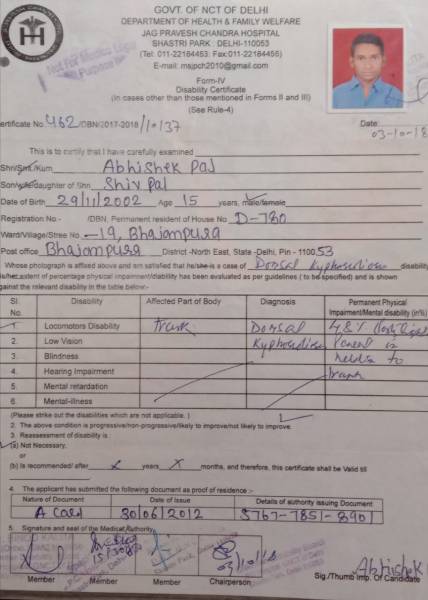 GOVT. OF NCT OF DELHI
DEPARTMENT OF HEALTH & FAMILY WELFARE
JAG PRAVESH CHANDRA HOSPITAL
SHASTRI PARK : DELHI-110053
(Tel: 011-22184453; Fax:011-22184456)
E-mail: msjpch2010@gmail.com
Not For Medico Legal
Purpose
Form-IV
Disability Certificate
(In cases other than those mentioned in Forms II and III)
(See Rule-4)
ertificate No. 462/DBN/2017-2018/10137
Date:
03-10-18
This is to certify that I have carefully examined
Shri/Smt./Kum. Abhishek Pal
Son/wife/daughter of Shri Shiv Pal
Date of Birth 29/11/2002 Age 15 years, male/female
Registration No.- /DBN, Permanent resident of House No. D-780
Ward/Village/Stree No. -19, Bhajampura
Post office Bhajampura District -North East, State -Delhi, Pin - 110053
Whose photograph is affixed above and am satisfied that he/she is a case of Dorsal Kyphoscoliosis disability
is/her extent of percentage physical impairment/diability has been evaluated as per guidelines ( to be specified) and is shown
gainst the relevant disability in the table below:-
Sl. No. Disability Affected Part of Body Diagnosis Permanent Physical Impairment/Mental disability (in%)
1. Locomotors Disability Trunk Dorsal 48%
2. Low Vision Kyphoscoliosis
3. Blindness relation to
4. Hearing Impairment trunk
5. Mental retardation
6. Mental-illness
(Please strike out the disabilities which are not applicable. )
2. The above condition is progressive/non-progressive/likely to improve/not likely to improve.
3. Reassessment of disability is :
(a) Not Necessary,
or
(b) Is recommended/ after x years x months, and therefore, this certificate shall be Valid till
4. The applicant has submitted the following document as proof of residence :-
Nature of Document Date of Issue Details of authority issuing Document
A Card 30/06/2012 5767-7851-8901
5. Signature and seal of the Medical Authority
03/10/18
Abhishek
Member Member Member Chairperson
Sig./Thumb Imp. Of Candidate